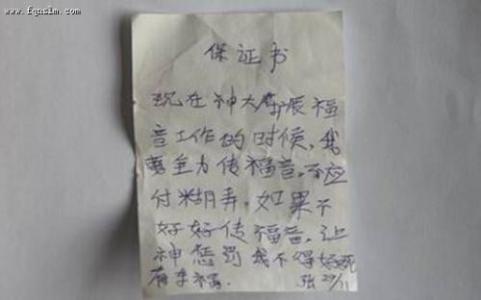 www.fqasim.com
保证书
现在神大扩展福
音工作的时候,我
要全力传福音,不应
付糊弄,如果不
好好传福音,让
神惩罚我不得好死
有车祸. 张 29/11